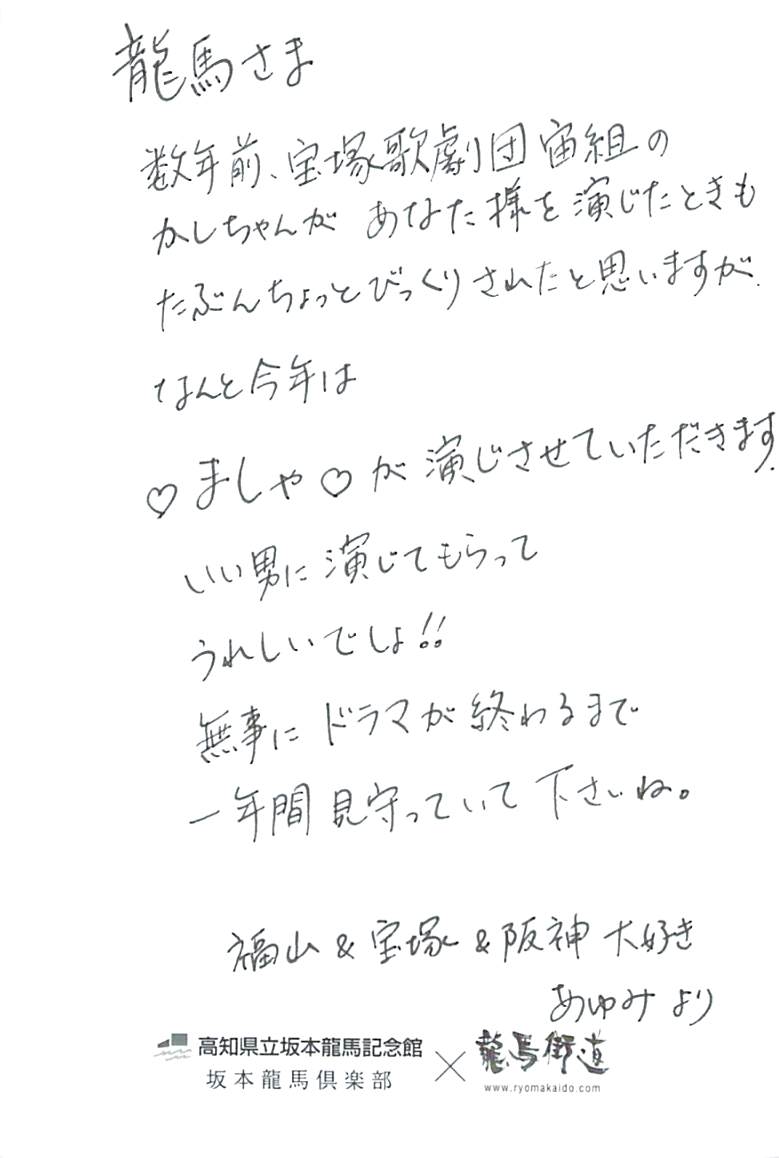 龍馬さま
数年前、宝塚歌劇団宙組の
かしちゃんが あなた様を演じたときも
たぶんちょっとびっくりされたと思いますが.
なんと今年は
♡ましゃ♡が演じさせていただきます.
いい男に演じてもらって
うれしいでしょ!!
無事にドラマが終わるまで
一年間見守っていて下さいね。
福山&宝塚&阪神大好き
あゆみより
高知県立坂本龍馬記念館
坂本龍馬倶楽部
×
龍馬街道
www.ryomakaido.com